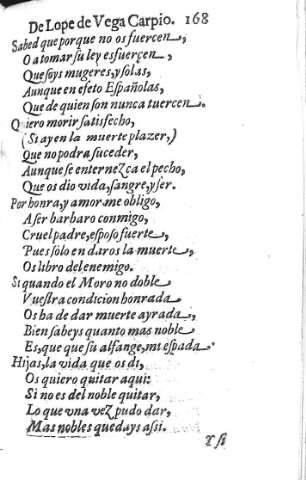 De Lope de Vega Carpio. 168
Sabed que porque no os fuercen,
O a tomar su ley esfuercen,
Que soys mugeres, y solas,
Aunque en efeto Españolas,
Que de quien son nunca tuercen.
Quiero morir satisfecho,
(Si ay en la muerte plazer,)
Que no podra suceder,
Aunque se enternezca el pecho,
Que os dio vida, sangre, y ser.
Por honra, y amor me obligo,
A ser barbaro conmigo,
Cruel padre, esposo fuerte,
Pues sólo en daros la muerte,
Os libro del enemigo.
Si quando el Moro no doble
Vuestra condicion honrada
Os ha de dar muerte ayrada,
Bien sabeys quanto mas noble
Es, que que su alfange, mi espada.
Hijas, la vida que os di,
Os quiero quitar aqui:
Si no es del noble quitar,
Lo que vna vez pudo dar,
Mas nobles quedays assi.
Y si